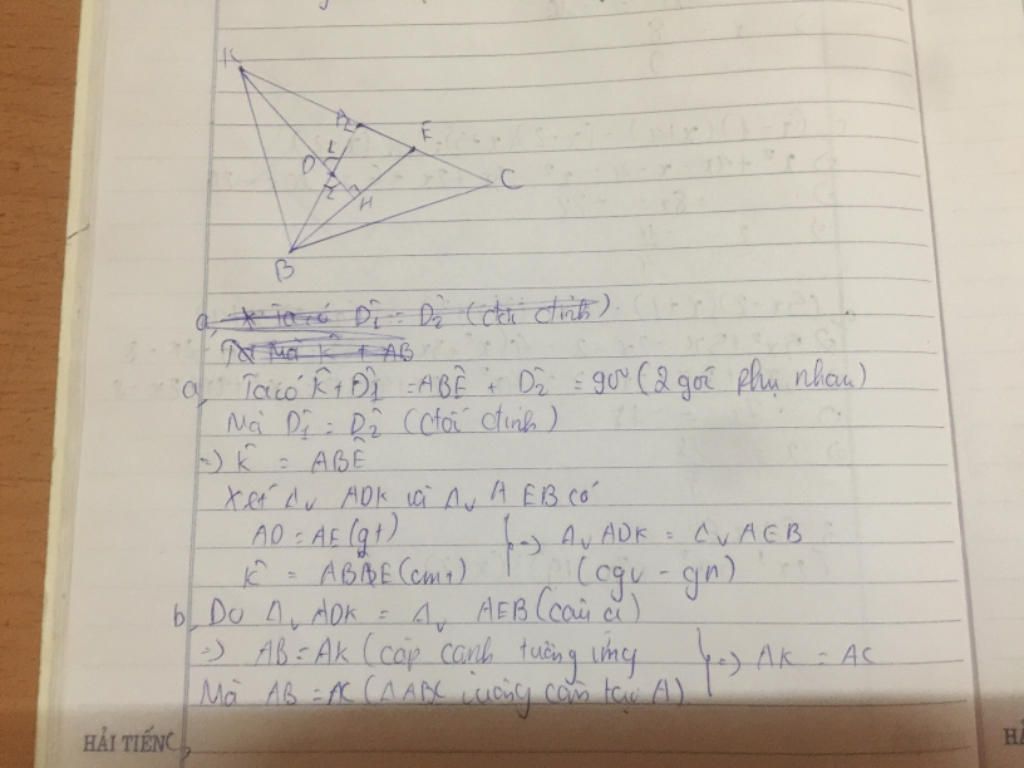 K
A
E
D
1
2
C
H
B
a, Ta có D̂1 = D̂2 (đối đỉnh).
Mà K̂ + AB
a, Ta có K̂ + D̂1 = AB̂E + D̂2 = 90° (2 góc phụ nhau)
Mà D̂1 = D̂2 (đối đỉnh)
=> K̂ = AB̂E
Xét Δv ADK và Δv AEB có
AD = AE (gt)
=> Δv ADK = Δv AEB
K̂ = ABE (cmt)
(cgv - gn)
b, Do Δv ADK = Δv AEB (câu a)
=> AB = AK (cặp cạnh tương ứng
=> AK = AC
Mà AB = AC (ΔABC vuông cân tại A)
HẢI TIẾN
HẢ